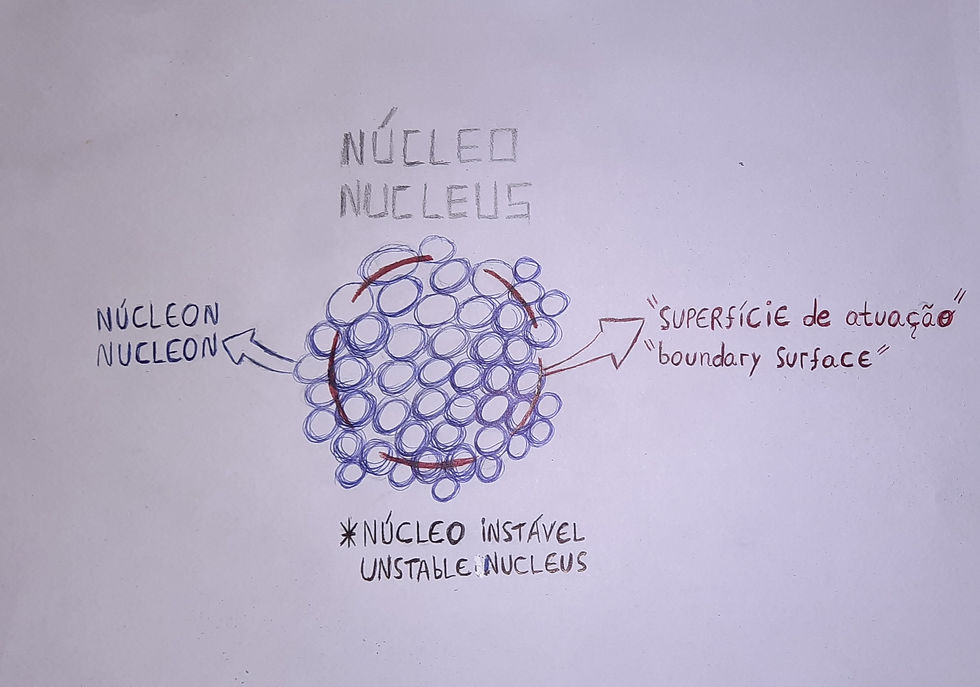 NÚCLEO
NUCLEUS
NÚCLEON
NUCLEON
"SUPERfíCiE de atuação"
"boundary surface"
*NÚCLEO iNSTÁVEL
UNSTAbLE NUCLEUS